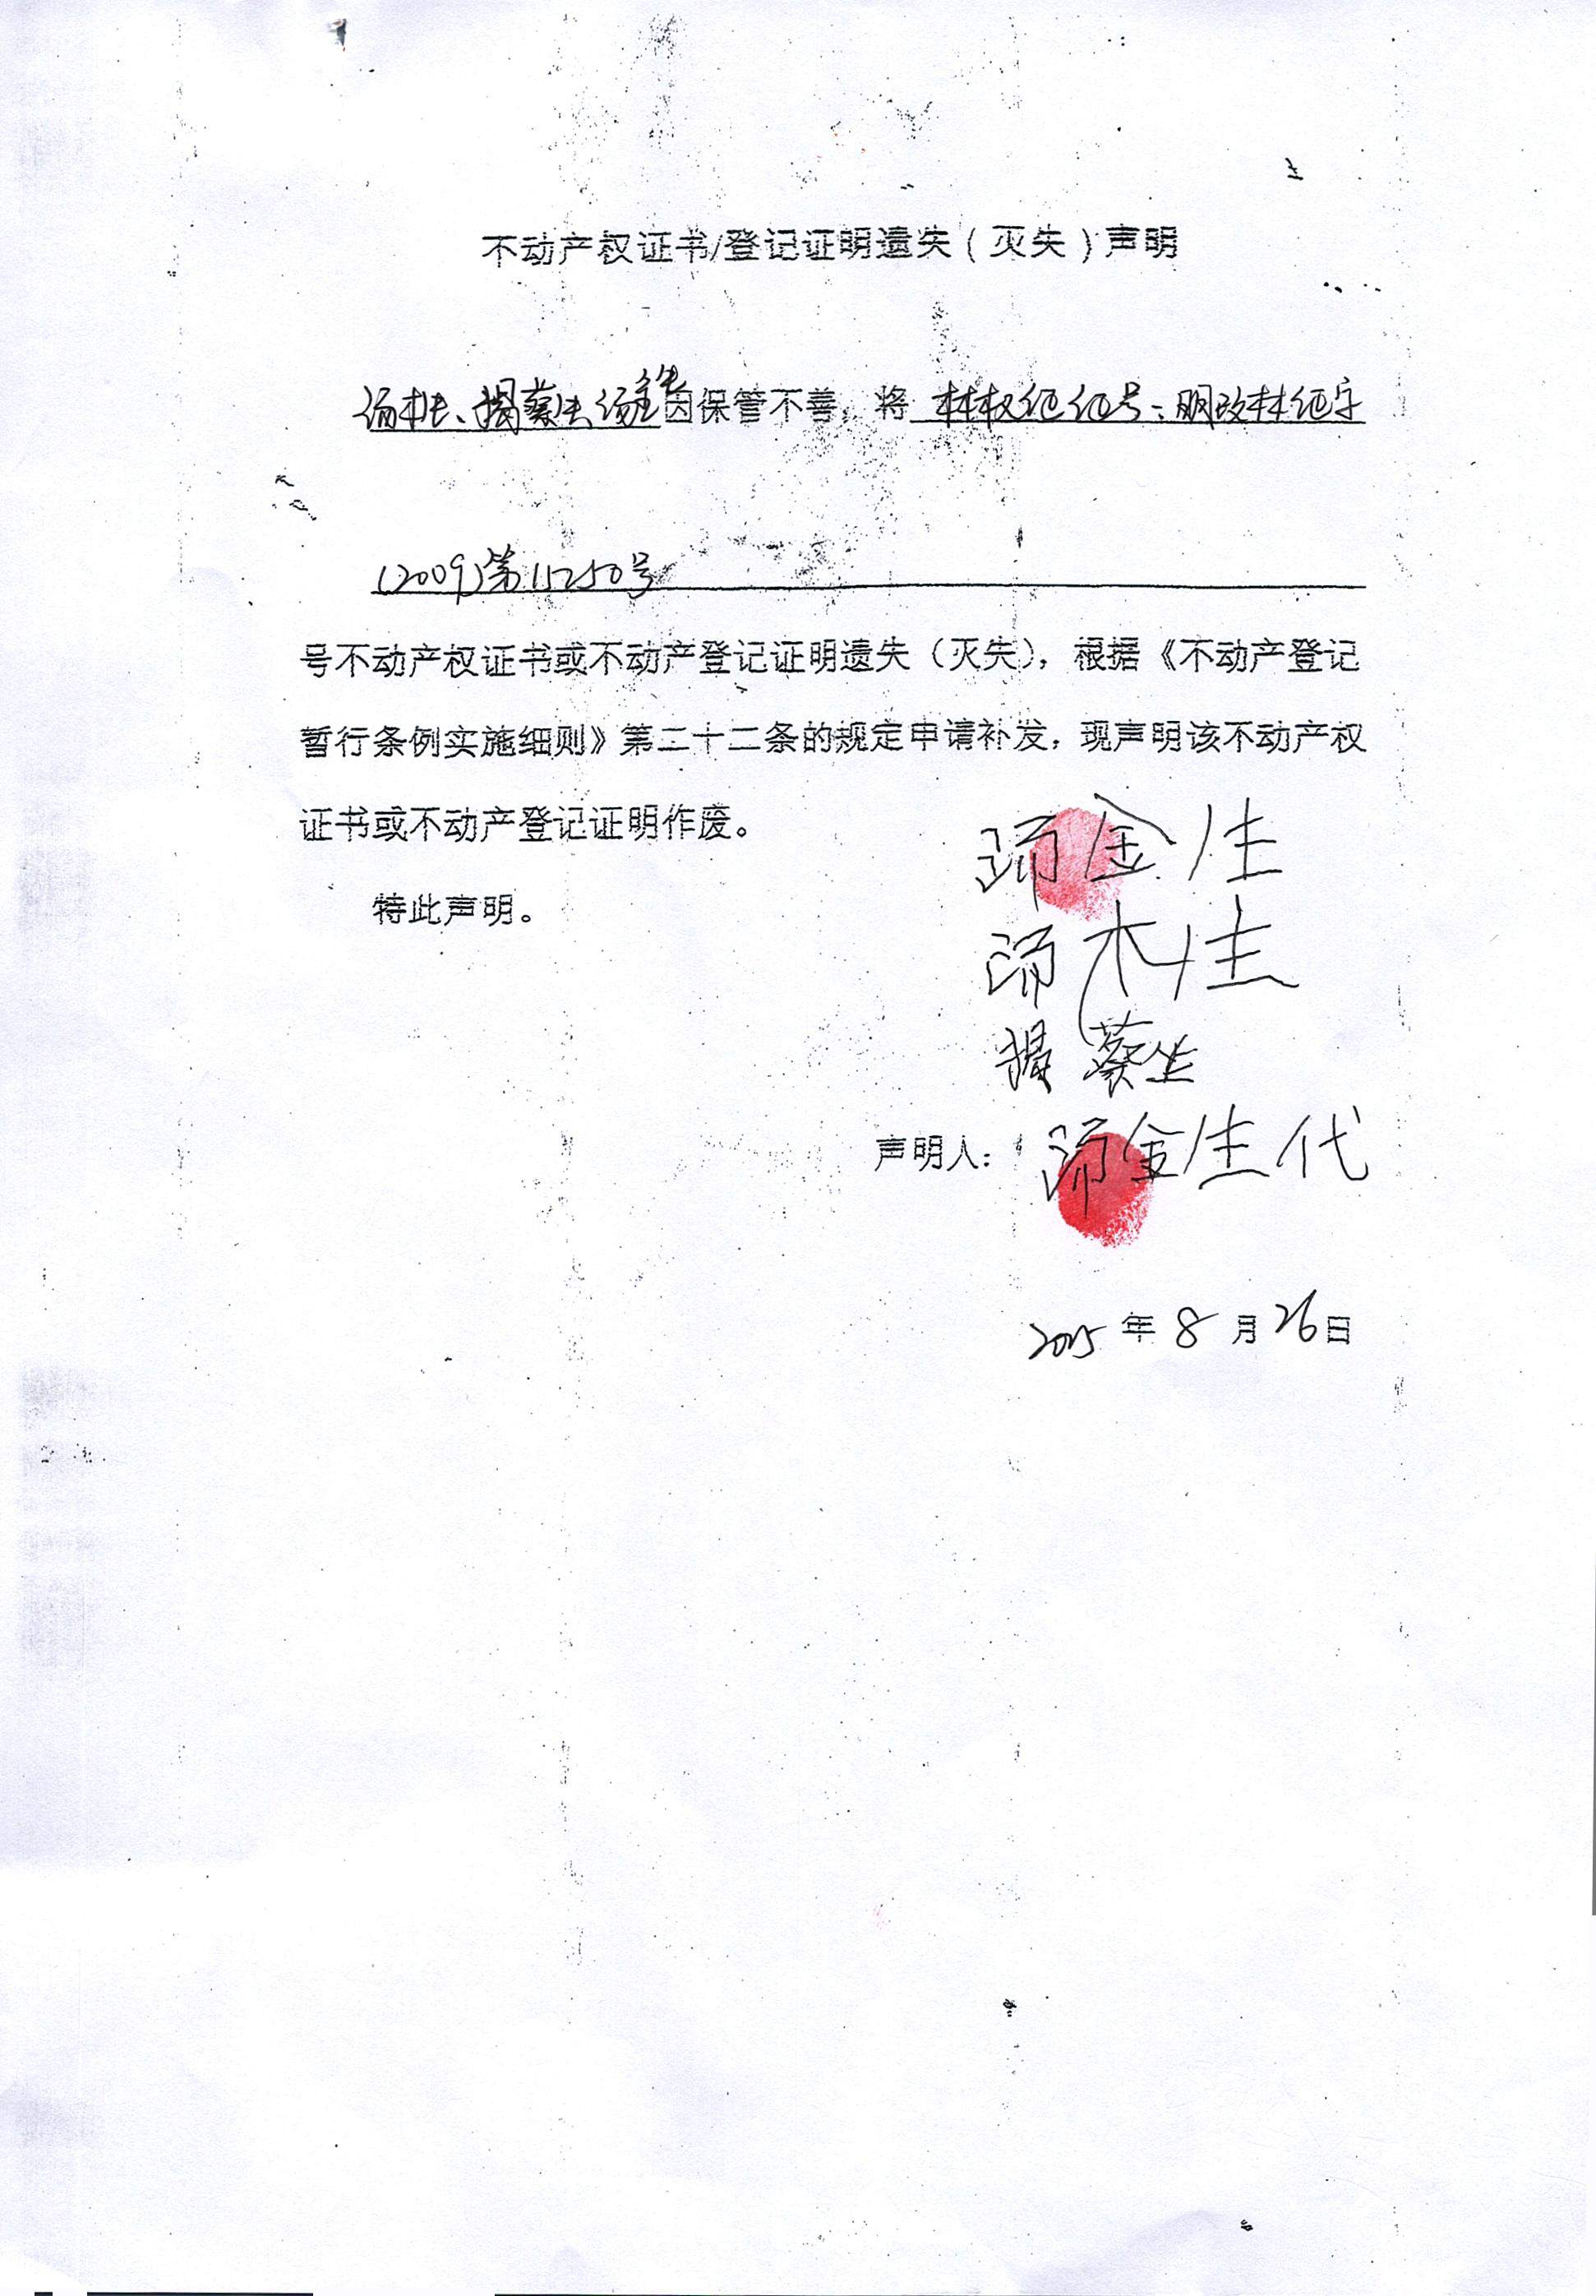 不动产权证书/登记证明遗失(灭失)声明
汤木生、揭蔡生、汤金生因保管不善,将 林权证证号:明政林证字
(2009)第115250号
号不动产权证书或不动产登记证明遗失(灭失),根据《不动产登记
暂行条例实施细则》第二十二条的规定申请补发,现声明该不动产权
证书或不动产登记证明作废。
特此声明。
汤金生
汤木生
揭蔡生
声明人: 汤金生代
2025年8月26日